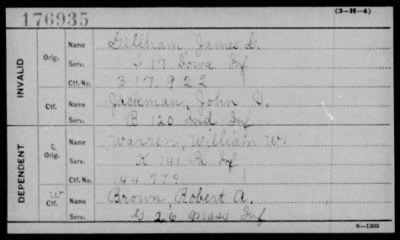 176935
(3-H-4)
INVALID
Orig.
Name Gillham, James L.
Serv. I 17 Iowa Inf
Ctf. No. 317.922
Ctf.
Name Jackman, John V.
Serv. B 120 Ind Inf
DEPENDENT
C Orig.
Name Warren, William W.
Serv. K 141 Pa Inf
Ctf. No. 44779
W Ctf.
Name Brown, Robert A.
Serv. G 26 Mass Inf
6—1303